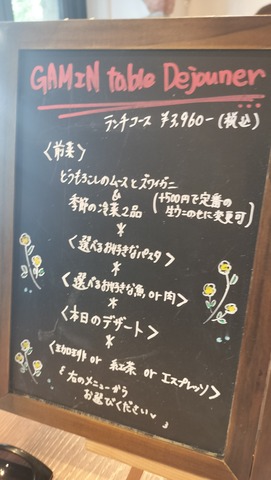 GAMIN table Dejeuner
ランチコース ¥3,960-(税込)
<前菜>
とうもろこしのムースとズワイガニ
&
季節の冷菜2品
(+500円で定番の
生ウニのせに変更可)
*
<選べるお好きなパスタ>
*
<選べるお好きな魚 or 肉>
*
<本日のデザート>
*
<珈琲 or 紅茶 or エスプレッソ>
右のメニューから
お選びください